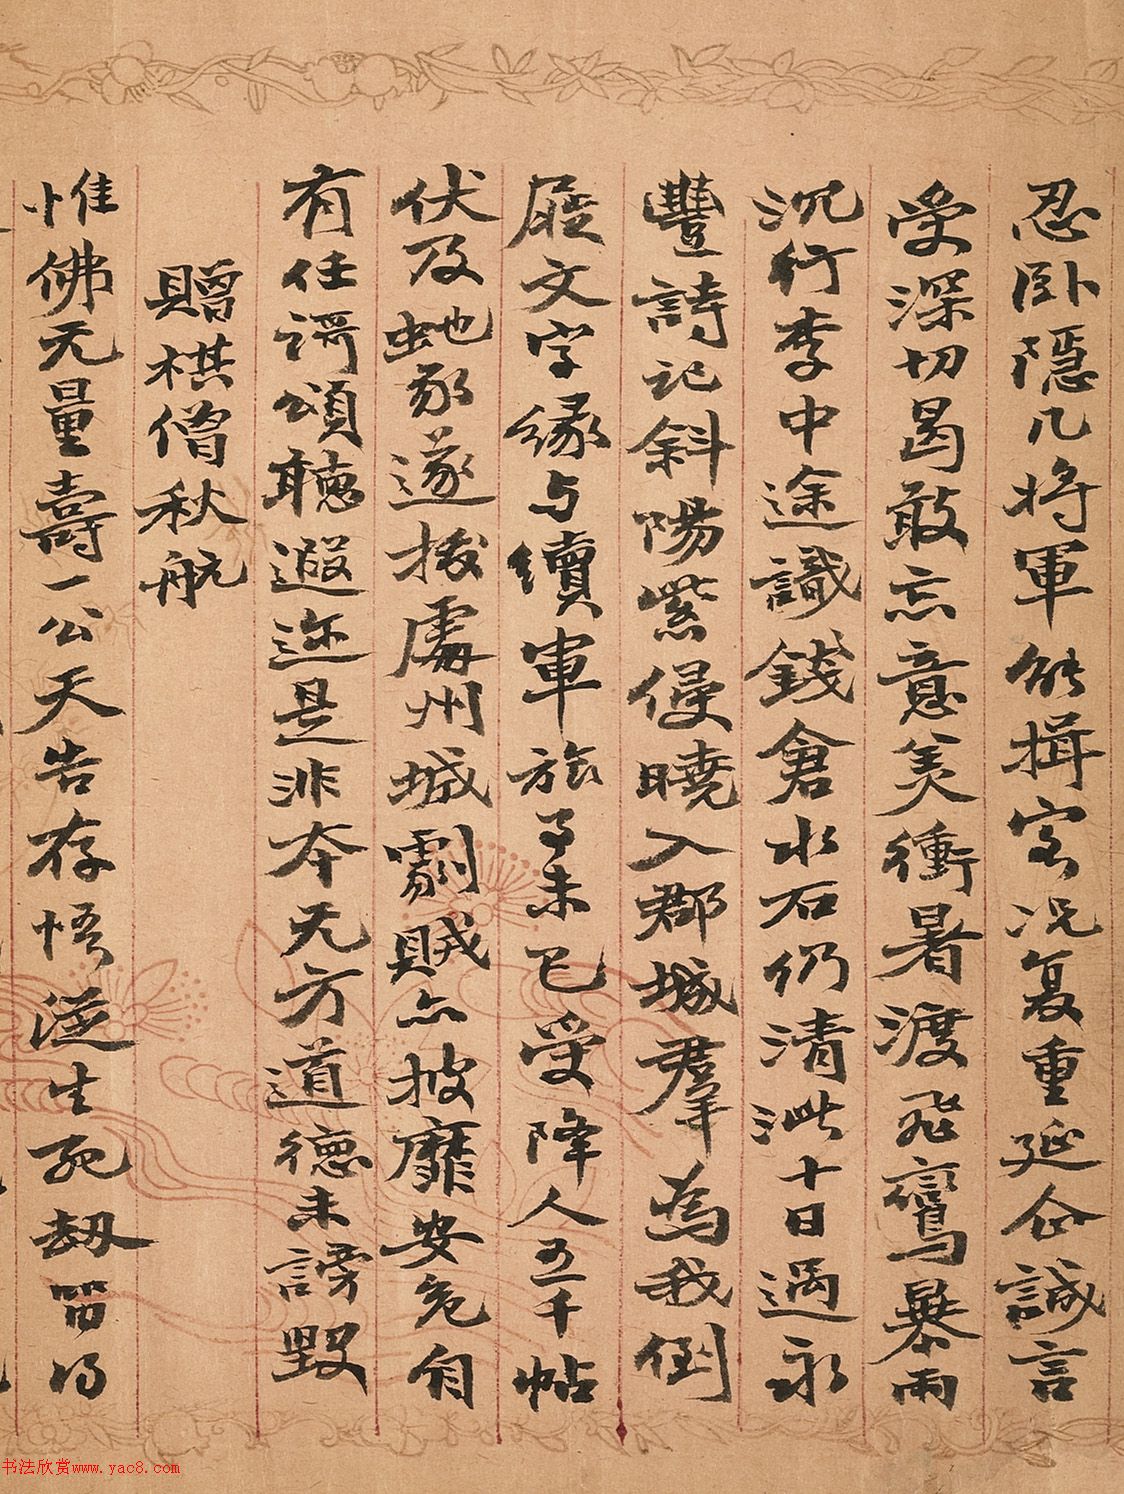 忍卧隱几將軍能揖客况复重延企誠言
受深切曷敢忘意美衝暑渡飛鸞暴雨
沉行李中途識錢倉水石仍清泚十日過永
豐詩記斜陽紫侵曉入郡城羣為我倒
屣文字緣与續軍旅事未已受降人五千帖
伏及虵豕遂拔處州城劇賊亦披靡安危自
有任謌頌聽遐迩是非本无方道德未謗毀
贈棋僧秋航
惟佛无量壽一公天告存悟從生死劫留得
书法欣赏www.yac8.com